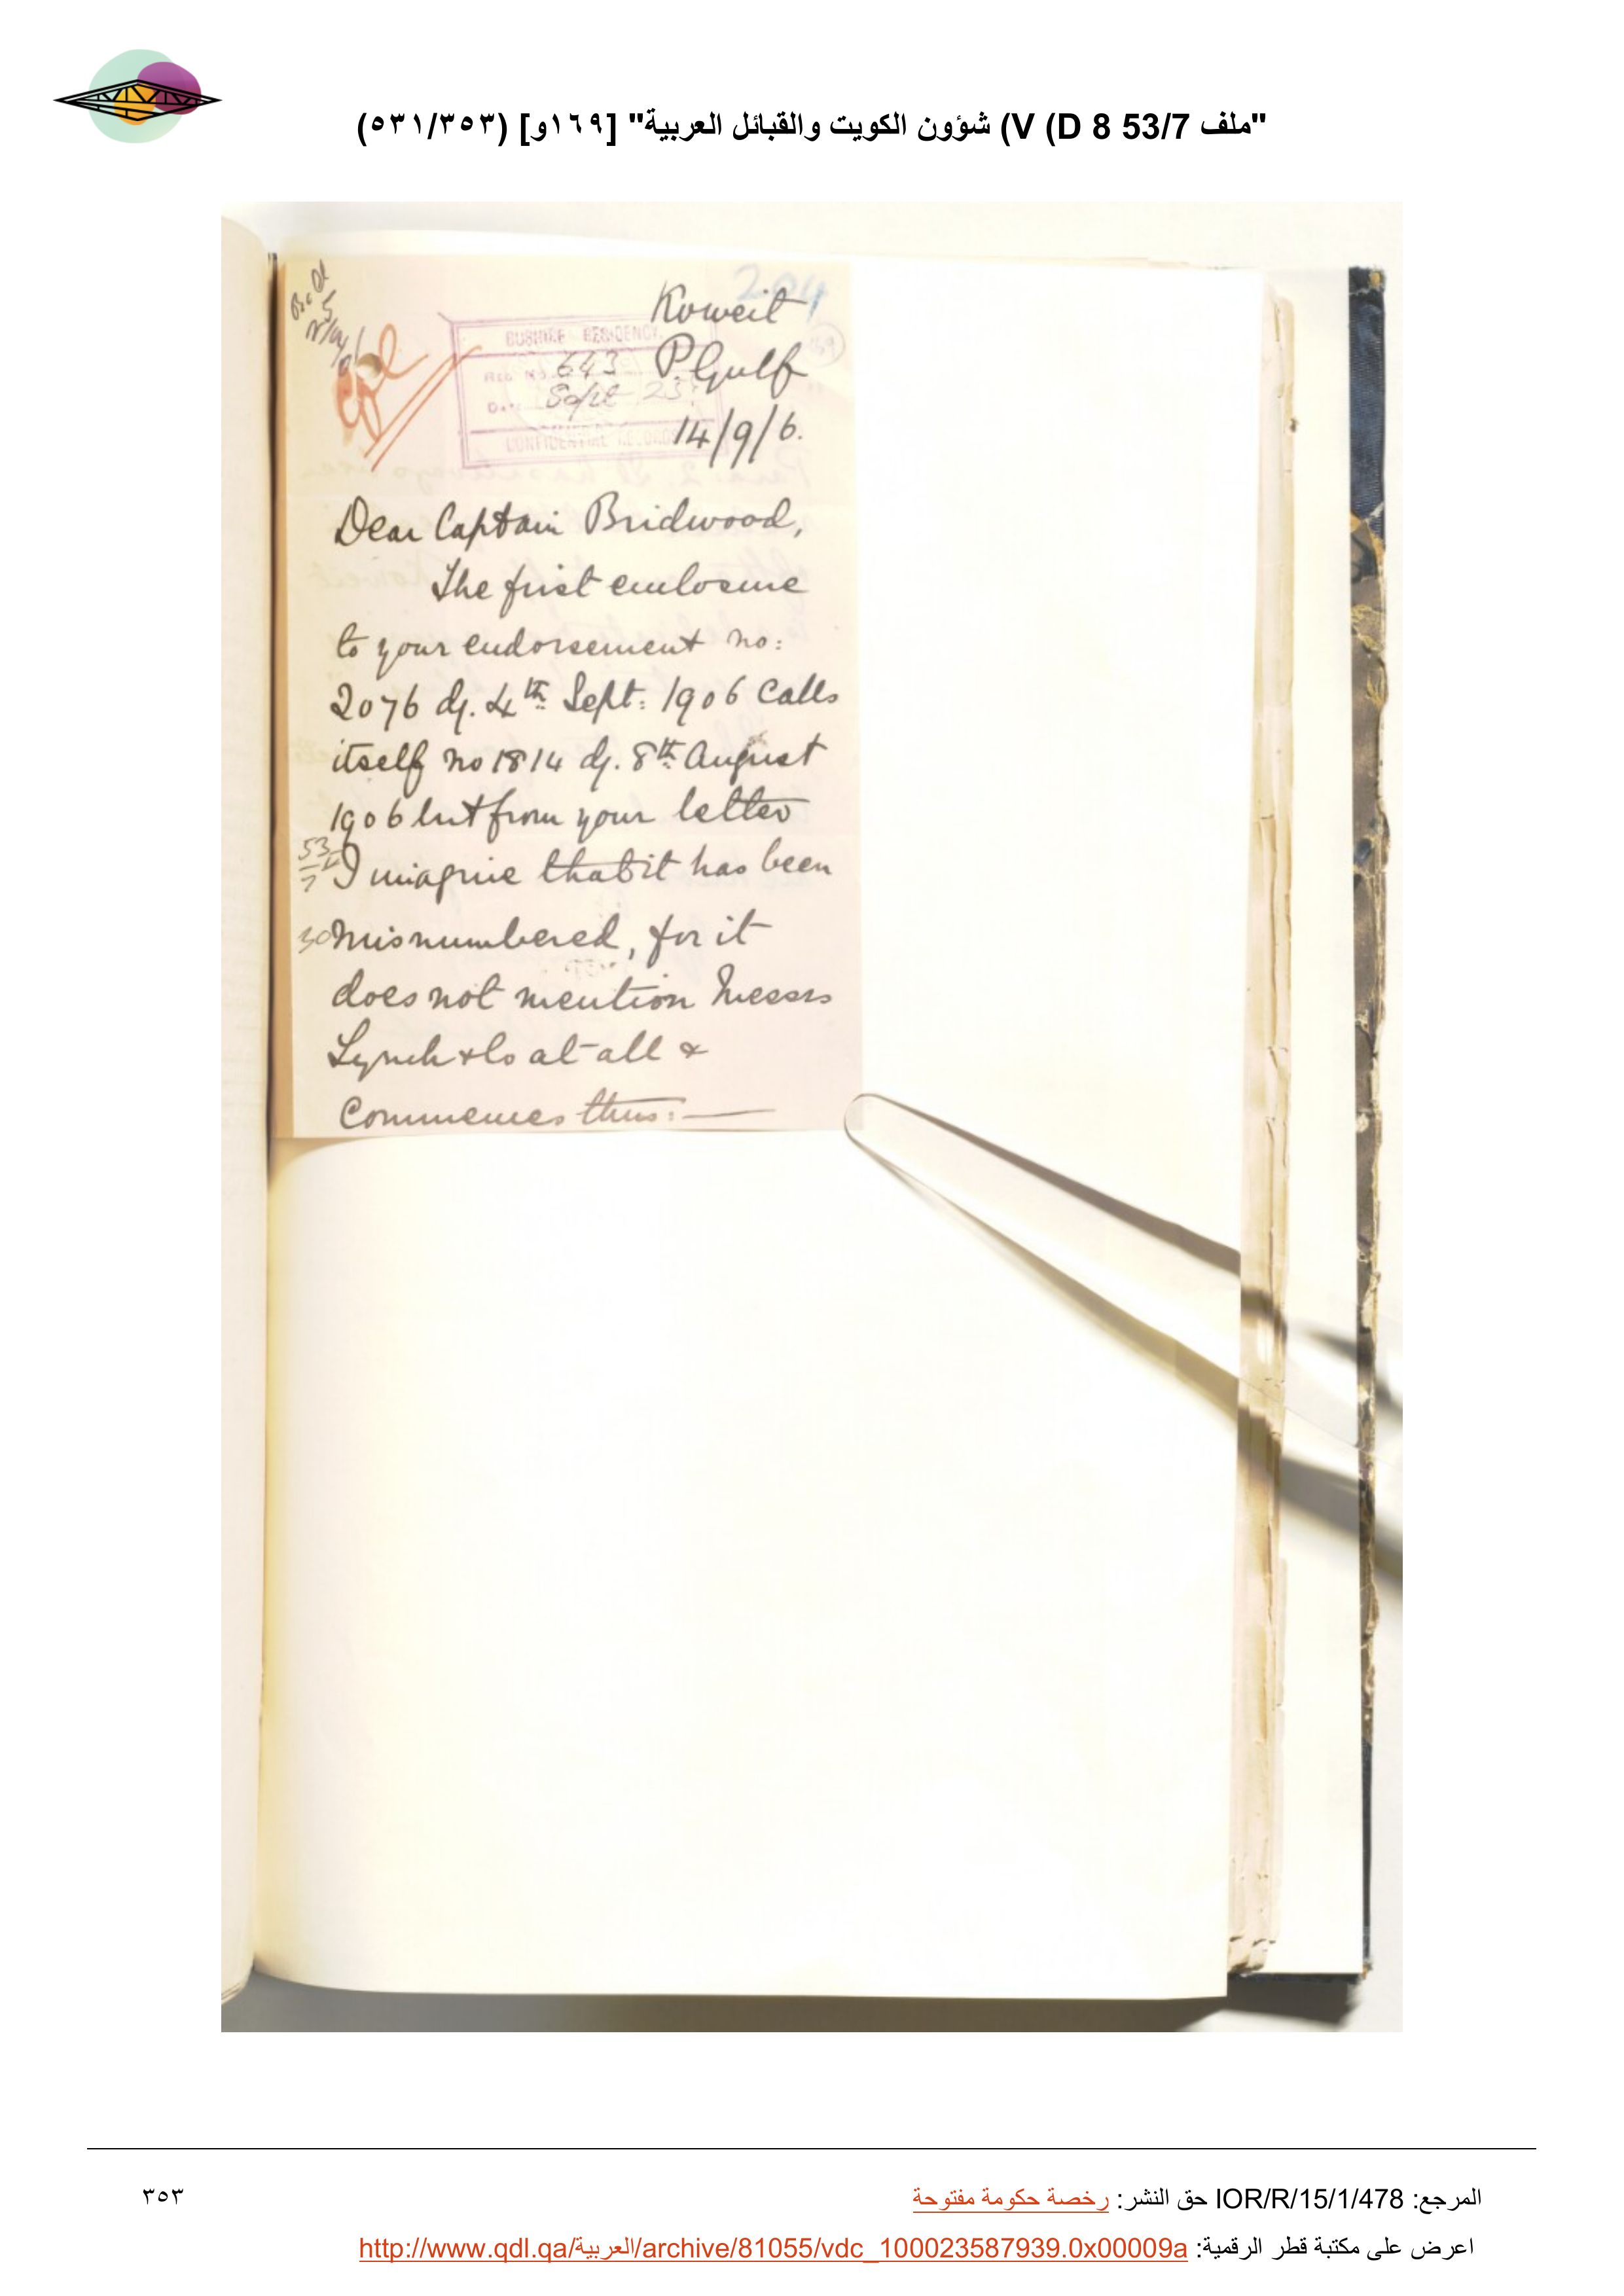 "ملف 53/7 V (D 8) شؤون الكويت والقبائل العربية" [١٦٩و] (٥٣١/٣٥٣)
204
Koweit
P. Gulf
14/9/6.
BUSHIRE RESIDENCY.
Reg. No. 643
Date Sept 23
CONFIDENTIAL RECORDS
Dear Captain Bridwood,
The first enclosure
to your endorsement no:
2076 dj. 4th Sept: 1906 calls
itself no 1814 dj. 8th August
1906 but from your letter
53/7
I imagine that it has been
30
misnumbered, for it
does not mention Messrs
Lynch & Co at all &
Commences thus: —
المرجع: IOR/R/15/1/478 حق النشر: رخصة حكومة مفتوحة
٣٥٣
اعرض على مكتبة قطر الرقمية: http://www.qdl.qa/العربية/archive/81055/vdc_100023587939.0x00009a